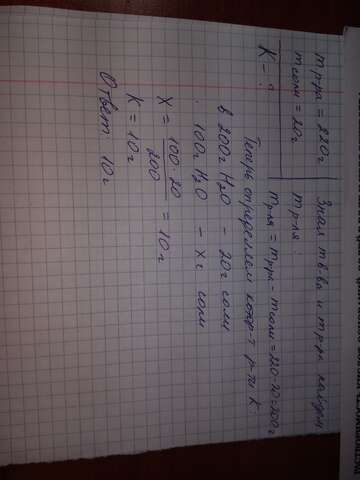 m р-ра = 220г
m соли = 20г
K - ?
Зная m в-ва и m р-ра найдём
m р-ля:
m р-ля = m р-ра - m соли = 220-20=200г
Теперь определяем коэф-т р-ти K
в 200г H2O - 20г соли
100г H2O - xг соли
X = 100·20/200 = 10г
K = 10г
Ответ: 10г